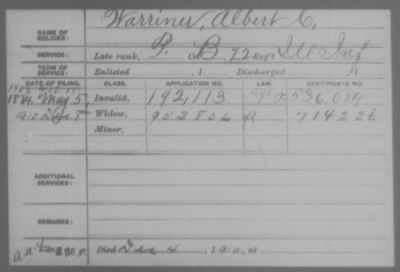 NAME OF SOLDIER: Warriner, Albert C,
SERVICE: Late rank, P. Co. B, 72 Reg't Ill Inf
TERM OF SERVICE: Enlisted , 1 Discharged , 1
DATE OF FILING. CLASS. APPLICATION NO. LAW. CERTIFICATE NO.
May 5 Invalid, 192,113 536,084
1910 Widow, 953802 A 714226
Minor,
ADDITIONAL SERVICES:
REMARKS:
Died 4, 1910, at